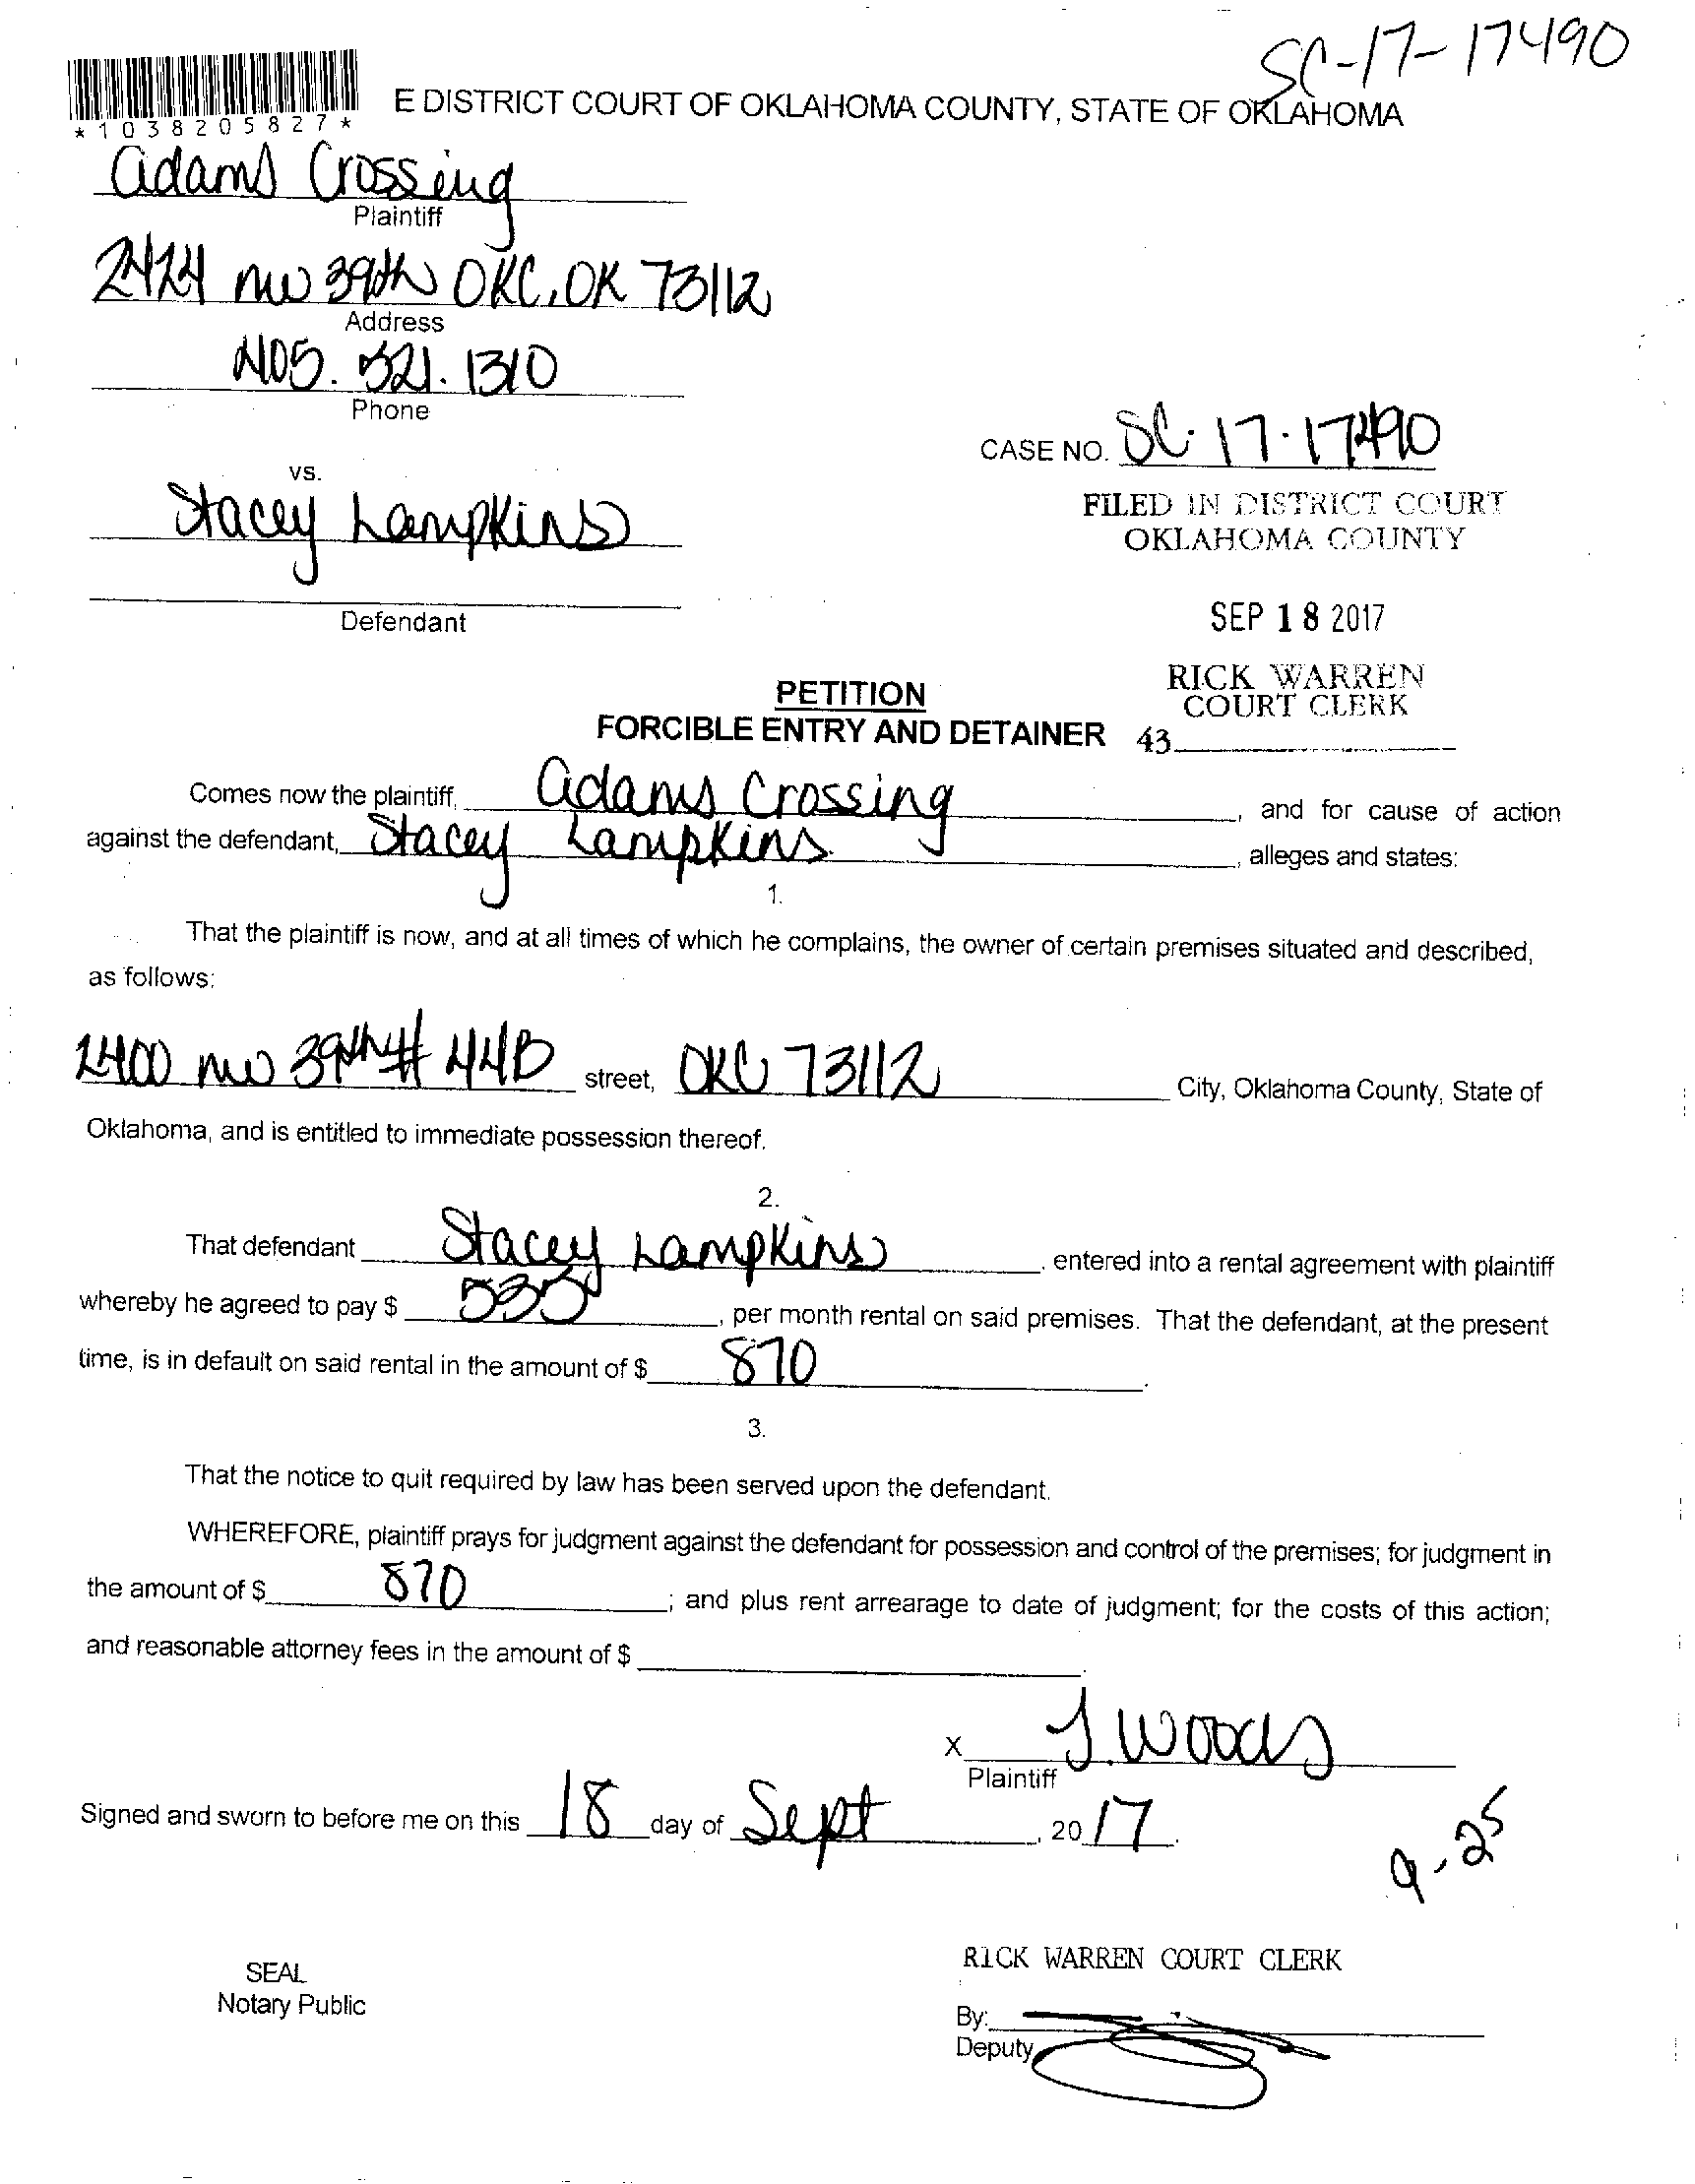 SC-17-17490
*1038205827*
E DISTRICT COURT OF OKLAHOMA COUNTY, STATE OF OKLAHOMA
Adams Crossing
Plaintiff
2424 NW 39th OKC, OK 73112
Address
405. 521. 1310
Phone
CASE NO. SC-17-17490
vs.
Stacey Lampkins
FILED IN DISTRICT COURT
OKLAHOMA COUNTY
Defendant
SEP 18 2017
RICK WARREN
COURT CLERK
43
PETITION
FORCIBLE ENTRY AND DETAINER
Comes now the plaintiff, Adams Crossing, and for cause of action
against the defendant, Stacey Lampkins, alleges and states:
1.
That the plaintiff is now, and at all times of which he complains, the owner of certain premises situated and described,
as follows:
2400 NW 39th # 44B street, OKC 73112 City, Oklahoma County, State of
Oklahoma, and is entitled to immediate possession thereof.
2.
That defendant Stacey Lampkins, entered into a rental agreement with plaintiff
whereby he agreed to pay $ 535, per month rental on said premises. That the defendant, at the present
time, is in default on said rental in the amount of $ 870.
3.
That the notice to quit required by law has been served upon the defendant.
WHEREFORE, plaintiff prays for judgment against the defendant for possession and control of the premises; for judgment in
the amount of $ 870; and plus rent arrearage to date of judgment; for the costs of this action;
and reasonable attorney fees in the amount of $
X J. Woods
Plaintiff
Signed and sworn to before me on this 18 day of Sept, 2017.
9-25
RICK WARREN COURT CLERK
SEAL
Notary Public
By:
Deputy